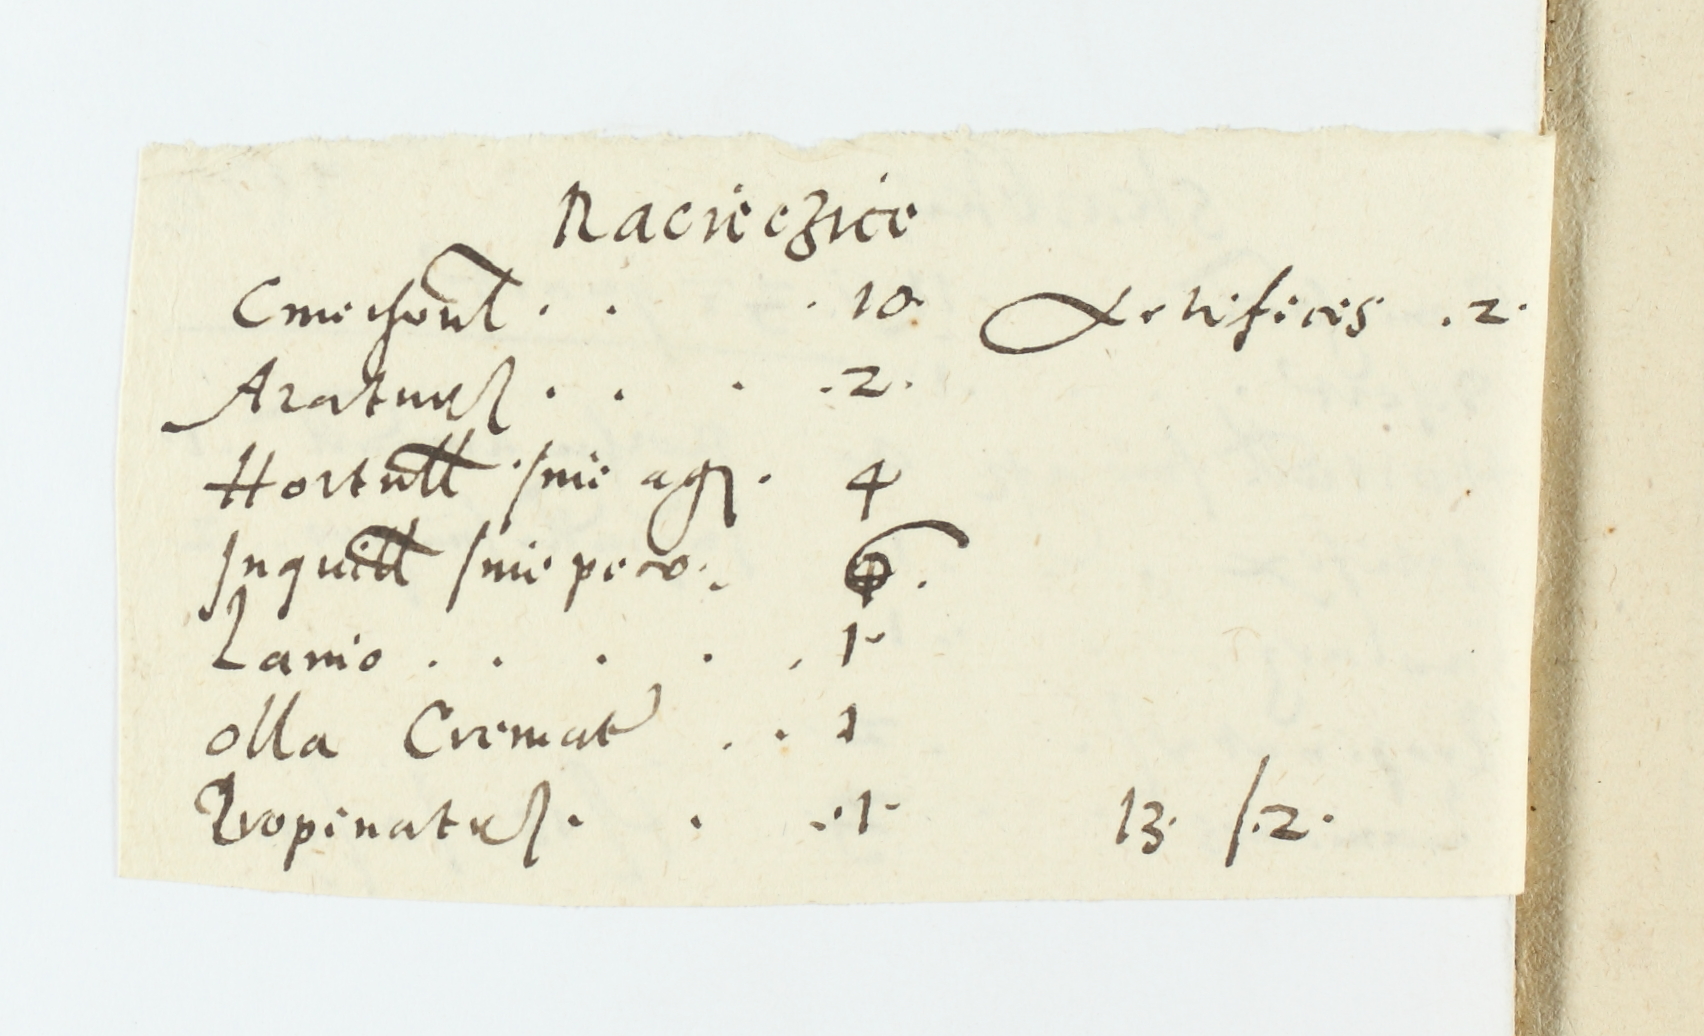 Racieczice
Cmethonl . . . 10 Artifices . 2 .
Araturs . . . . 2 .
Hortull sine agr . 4
Inquill sine peco .
Lanio . . . . . 1
olla Cremat . . 1
Propinatur . . . 1 13 / . 2 .